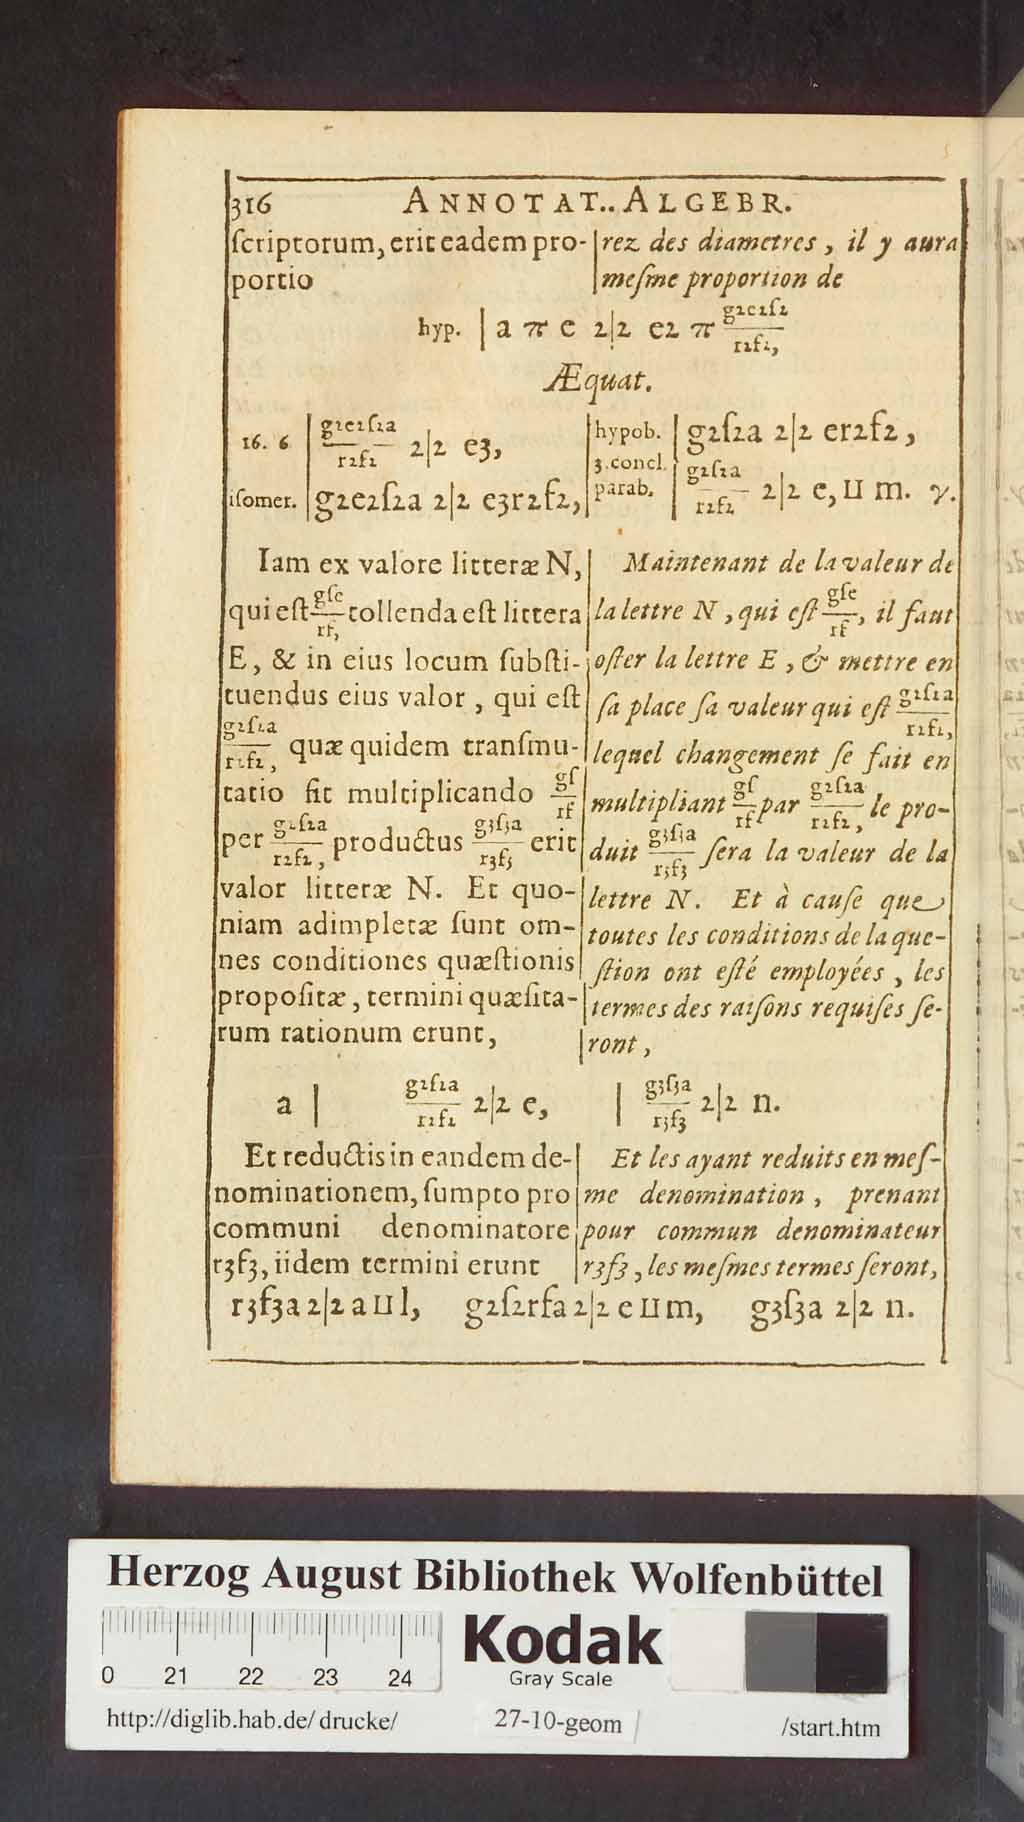 316 ANNOTAT.. ALGEBR.
ſcriptorum, erit eadem pro-
portio
rez des diametres, il y aura
meſme proportion de
hyp. | a π e 2|2 e2 π g2e2ſ2/r2f2,
Æquat.
16. 6 | g2e2ſ2a/r2f2 2|2 e3,
iſomer. | g2e2ſ2a 2|2 e3r2f2,
hypob. | g2ſ2a 2|2 er2f2,
3.concl. parab. | g2ſ2a/r2f2 2|2 e, II m. γ.
Iam ex valore litteræ N,
qui eſt gſe/rf, tollenda eſt littera
E, & in eius locum ſubſti-
tuendus eius valor, qui eſt
g2ſ2a/r2f2, quæ quidem tranſmu-
tatio fit multiplicando gſ/rf
per g2ſ2a/r2f2, productus g3ſ3a/r3f3 erit
valor litteræ N. Et quo-
niam adimpletæ ſunt om-
nes conditiones quæſtionis
propoſitæ, termini quæſita-
rum rationum erunt,
Maintenant de la valeur de
la lettre N, qui eſt gſe/rf, il faut
oſter la lettre E, & mettre en
ſa place ſa valeur qui eſt g2ſ2a/r2f2,
lequel changement ſe fait en
multipliant gſ/rf par g2ſ2a/r2f2, le pro-
duit g3ſ3a/r3f3 ſera la valeur de la
lettre N. Et à cauſe que
toutes les conditions de la que-
ſtion ont eſté employées, les
termes des raiſons requiſes ſe-
ront,
a | g2ſ2a/r2f2 2|2 e, | g3ſ3a/r3f3 2|2 n.
Et reductis in eandem de-
nominationem, ſumpto pro
communi denominatore
r3f3, iidem termini erunt
Et les ayant reduits en meſ-
me denomination, prenant
pour commun denominateur
r3f3, les meſmes termes ſeront,
r3f3a 2|2 a II l, g2ſ2rfa 2|2 e II m, g3ſ3a 2|2 n.
Herzog August Bibliothek Wolfenbüttel
0 21 22 23 24
Kodak
Gray Scale
http://diglib.hab.de/drucke/ 27-10-geom /start.htm